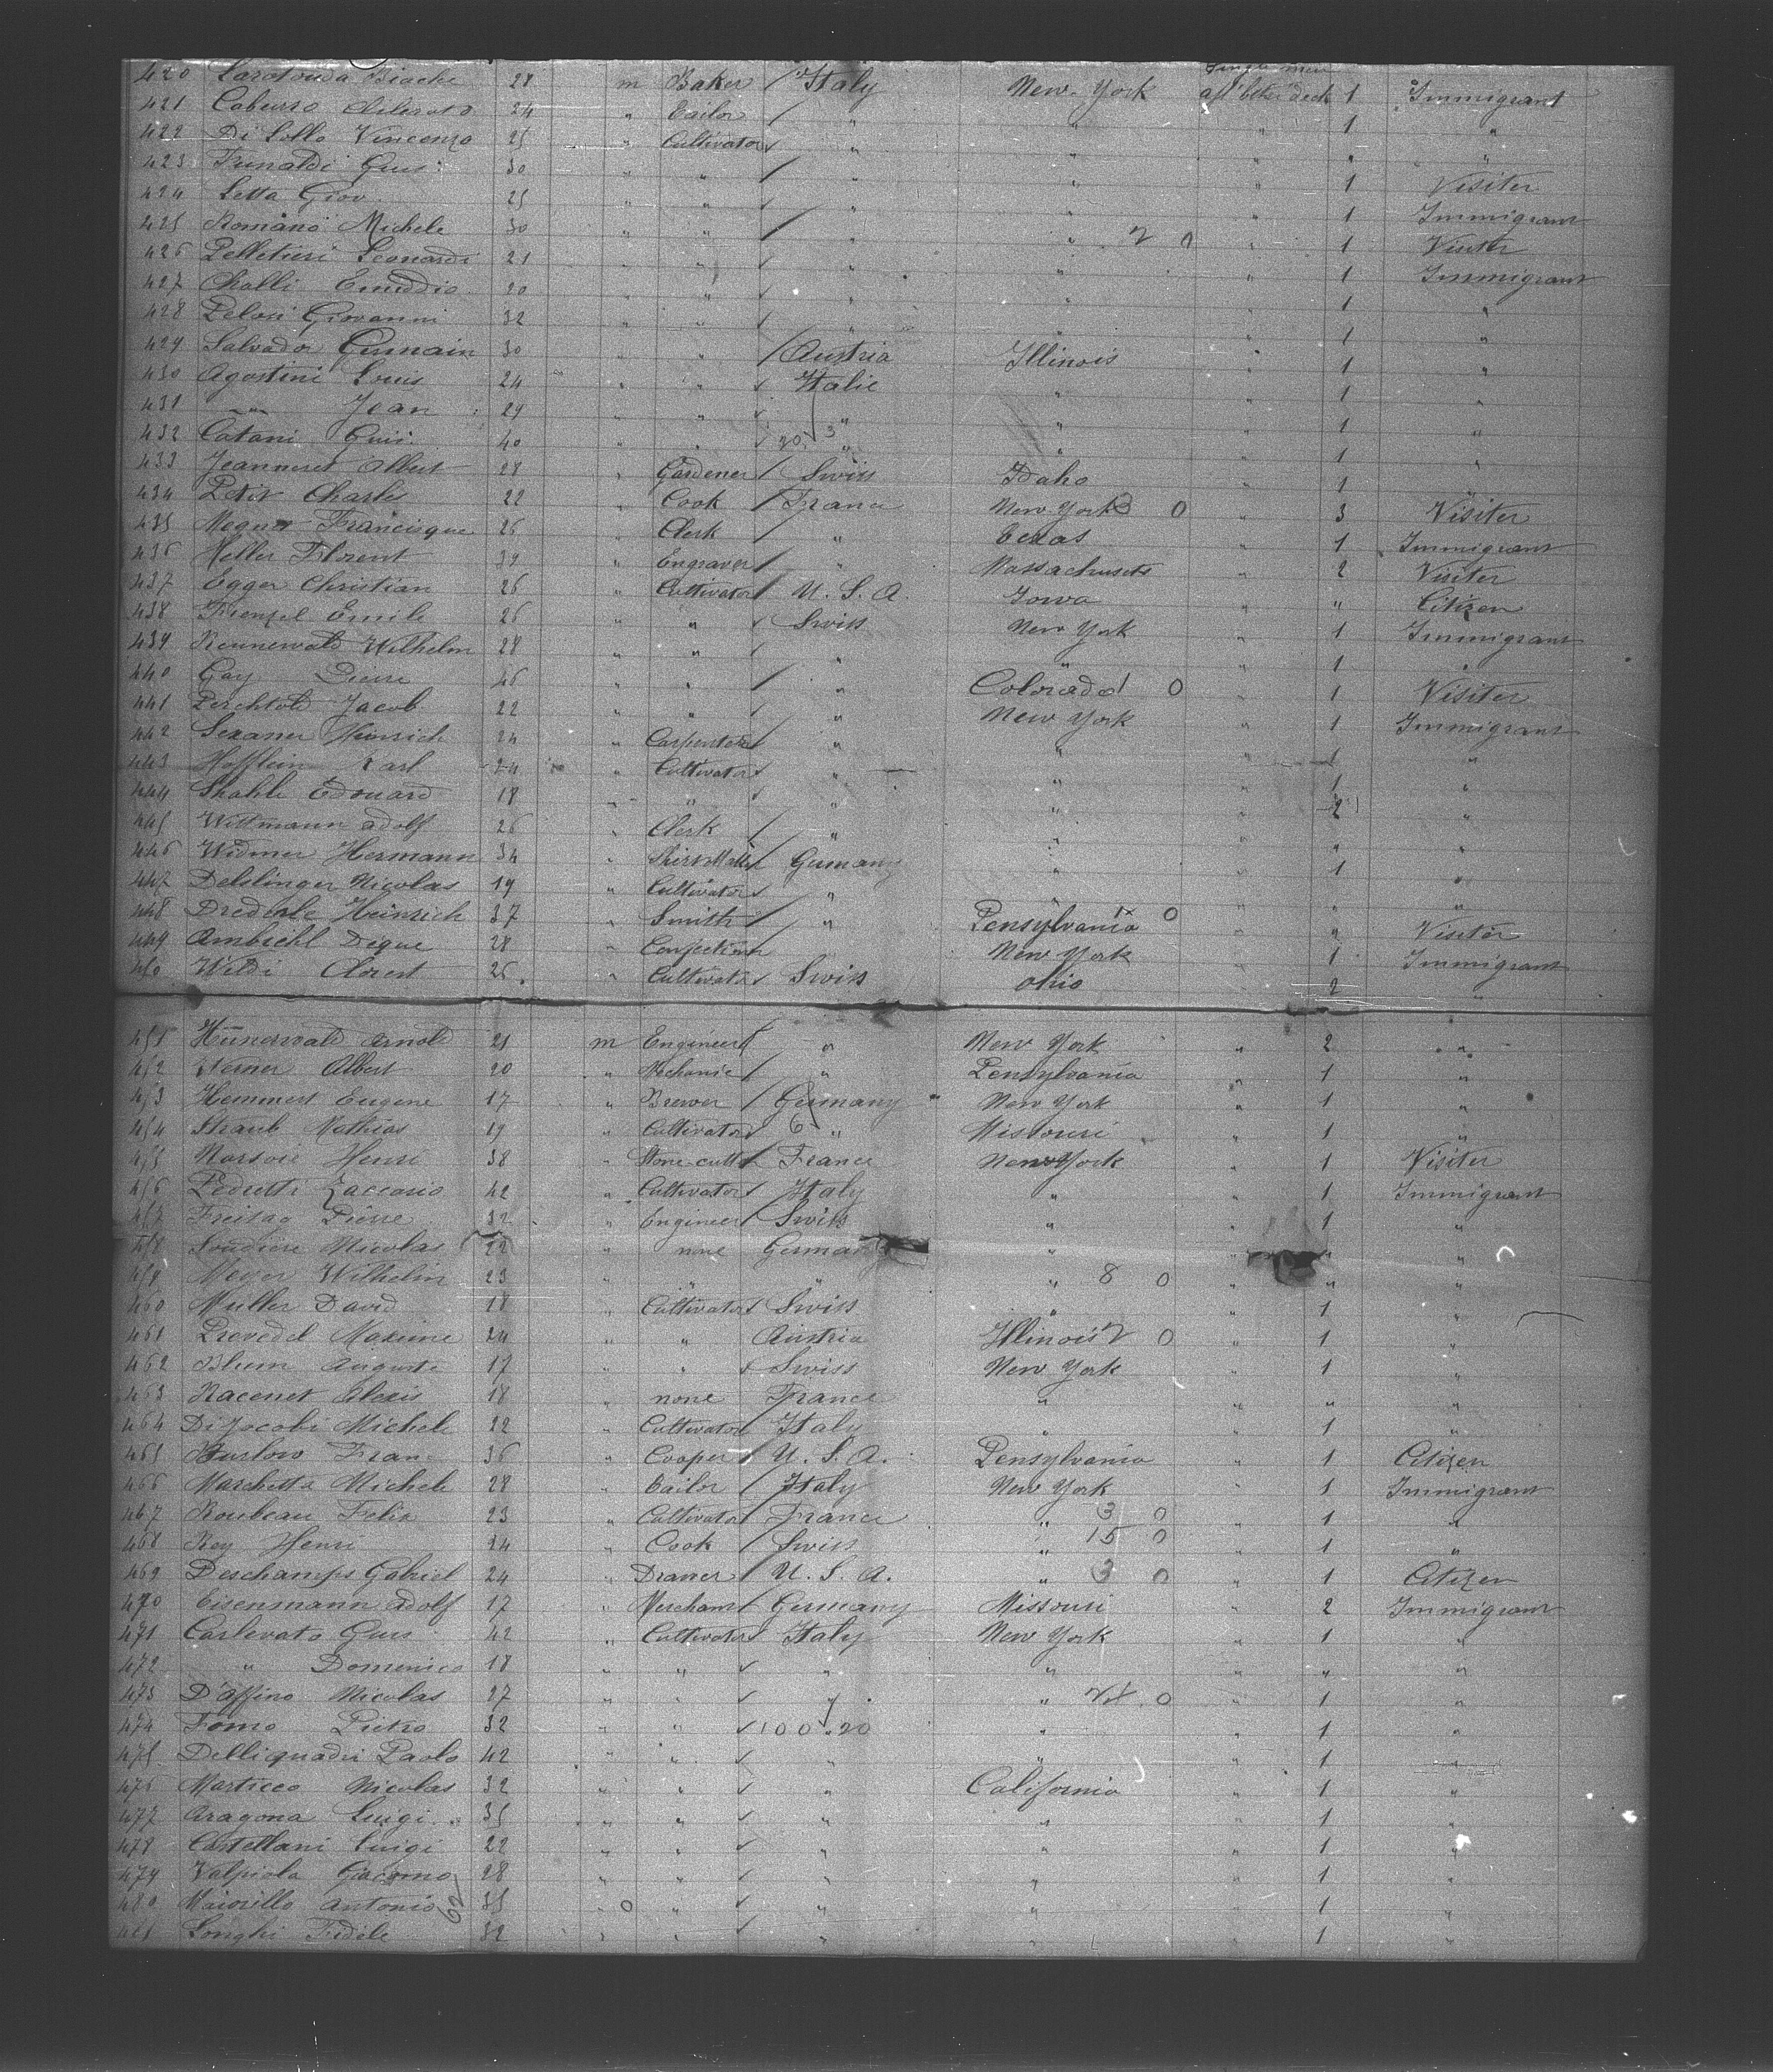 Single men
420 Larotonda Biache 28 m Baker / Italy New-York aft betw deck 1 Immigrant
421 Caburso 24 " Tailor / " " " 1 "
422 Di Lollo Vincenzo 25 " Cultivator " " " " "
423 Funaldi Gius: 30 " " / " " " 1 Visiter
424 Letta Giov. 25 " " " " " 1 Immigrant
425 Romano Michele 30 " " / " " 2 0 " 1 Visiter
426 Pelletieri Leonardi 21 " " " " " 1 Immigrant
427 Challi Emiddio 20 " " " " " 1 "
428 Pelosi Giovanni 32 " " " " " 1 "
429 Salvador Germain 30 " " / Austria Illinois " 1 "
430 Agostini Louis 24 " " Italie " " 1 "
431 " Jean 29 " " " " " 1 "
432 Catani Guis. 40 " " 20 3 " " " 1 "
433 Jeanneret Albert 28 " Gardener / Swiss Idaho " 1 "
434 Petit Charles 22 " Cook / France New York 3 0 " 3 Visiter
435 Francisque 26 " Clerk / " Texas " 1 Immigrant
436 Heller Florent 39 " Engraver / " Massachusets " 2 Visiter
437 Egger Christian 26 " Cultivator / U. S. A. Iowa " " Citizen
438 Frenzel Emile 26 " " Swiss New York " 1 Immigrant
439 Rennewald Wilhelm 28 " " " " " 1 "
440 Gay Pierre 46 " " / " Colorado 1 0 " 1 Visiter
441 Perchtold Jacob 22 " " / " New York " 1 Immigrant
442 Sexauer Heinrich 24 " Carpenter " " " 1 "
443 Hofflein Karl 24 " Cultivator " " " 1 "
444 Stahli Edouard 18 " " " " " 2 "
445 Wittmann Adolf 26 " Clerk / " " " " "
446 Widmer Hermann 34 " Germany " " 1 "
447 Delslinger Nicolas 19 " Cultivator " " " " "
448 Drederle Heinrich 37 " Smith / " Pensylvania 0 " " Visiter
449 Ambiehl Dique 28 " New York " 1 Immigrant
450 Wildi 26 " Cultivator Swiss Ohio 2 "
451 Hünerwald Arnold 21 m Engineer / " New York " 2 "
452 Werner Albert 20 " Mechanic / " Pensylvania " 1 "
453 Hemmert Eugene 17 " Brewer / Germany New York " 1 "
454 Straub Mathias 19 " Cultivator 6 " Missouri " 1 "
455 Henri 38 " Stone-cutter France New York " 1 Visiter
456 Pedretti Zaccario 42 " Cultivator Italy " " 1 Immigrant
457 Freitag Pierre 32 " Engineer / Swiss " " 1 "
458 Nicolas 22 " none Germany " " " "
459 Meyer Wilhelm 23 " " " " 8 0 " " "
460 Muller David 18 " Cultivator Swiss " " 1 "
461 Prevedel Maxime 24 " " Austria Illinois 2 0 " 1 "
462 Blum Auguste 17 " " Swiss New York " 1 "
463 Racenet Alexis 18 " none France " " " "
464 Di Jacobi Michele 22 " Cultivator Italy " " 1 "
465 Burlow Fran 36 " Cooper / U. S. A. Pensylvania " 1 Citizen
466 Marchetta Michele 28 " Tailor / Italy New York " 1 Immigrant
467 Roubeau Felix 23 " Cultivator France " 3 0 " 1 "
468 Rey Henri 24 " Cook / Swiss " 15 0 " 1 "
469 Deschamps Gabriel 24 " / U. S. A. " 3 0 " 1 Citizen
470 Eisenmann Adolf 17 " Merchant / Germany Missouri " 2 Immigrant
471 Carlevato Guis 42 " Cultivator Italy New York " 1 "
472 " Domenico 18 " " " " " " "
473 D'Affino Nicolas 27 " " " " 0 " 1 "
474 Fomo Pietro 32 " " 100 20 " " 1 "
475 Delliquadri Paolo 42 " " " " " 1 "
476 Marticco Nicolas 32 " " " California " 1 "
477 Aragona Luigi 35 " " " " " 1 "
478 Castellani Luigi 22 " " " " " 1 "
479 Valpiola Giacomo 28 " " " " " 1 "
480 Maiorillo Antonio 62 35 " 0 " " " " 1 "
481 Longhi Fidele 32 " " " " " 1 "